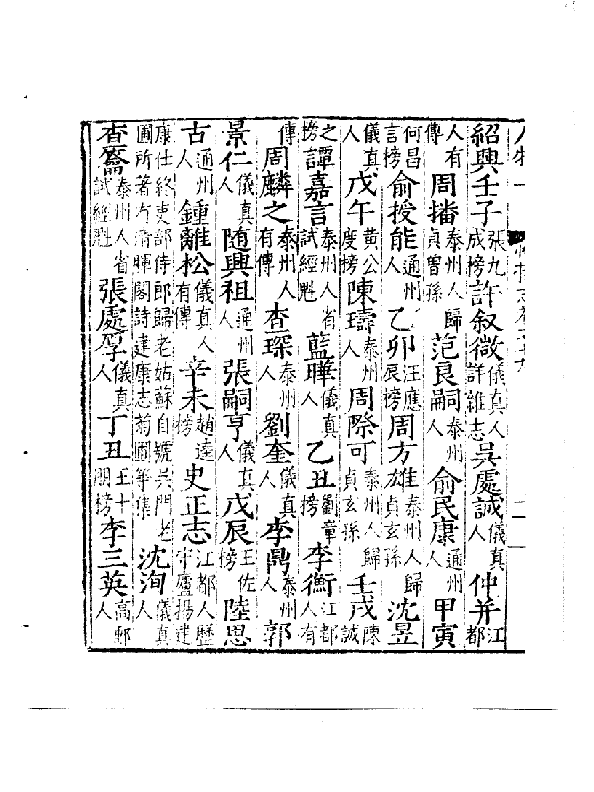 紹興壬子張九成榜許叙微儀真人詳雜志吳處誠儀真人仲并江都
人有傳周播泰州人歸貞曾孫范良嗣泰州人俞民康通州人甲寅
何昌言榜俞授能通州人乙卯汪應辰榜周方雄泰州人歸貞玄孫沈昱
儀真人戊午黃公度榜陳璹泰州人周際可泰州人歸貞玄孫壬戌陳誠
之榜譚嘉言泰州人省試經魁藍曄儀真人乙丑劉章榜李衡江都人有
傳周麟之泰州人有傳查琛泰州人劉奎儀真人李鼎泰州人郭
景仁儀真人随興祖通州人張嗣亨儀真人戊辰王佐榜陸思
古通州人鍾離松儀真人有傳辛未趙逵榜史正志江都人歷守廬揚建
康仕終吏部侍郎歸老姑蘇自號吳門老圃所著有清暉閣詩建康志菊圃等集沈洵儀真人
查籥泰州人省試經魁張處厚儀真人丁丑王十朋榜李三英高郵人